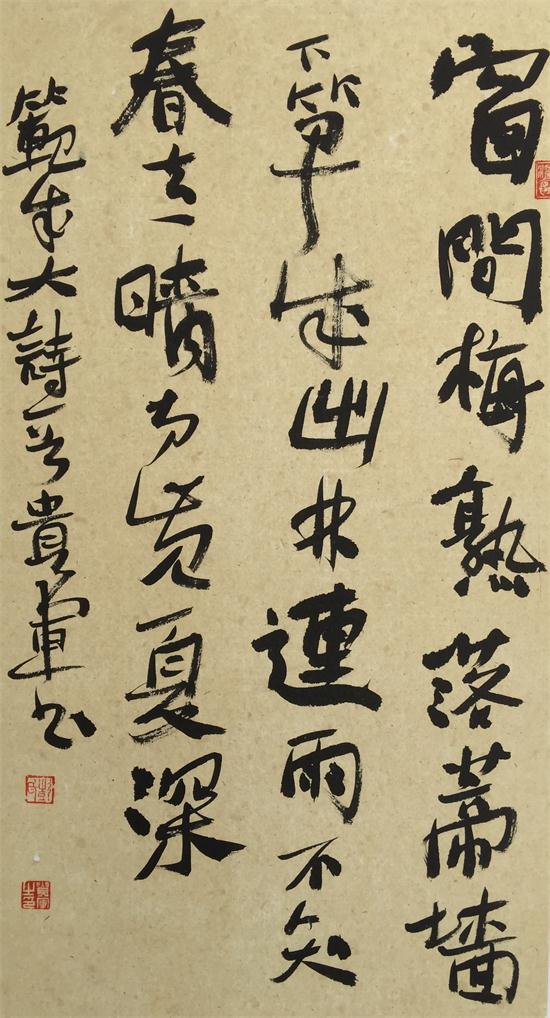 窗間梅熟落蒂墻
下筍成出林連雨不知
春去一晴方覺夏深
範成大詩一首貴軍书